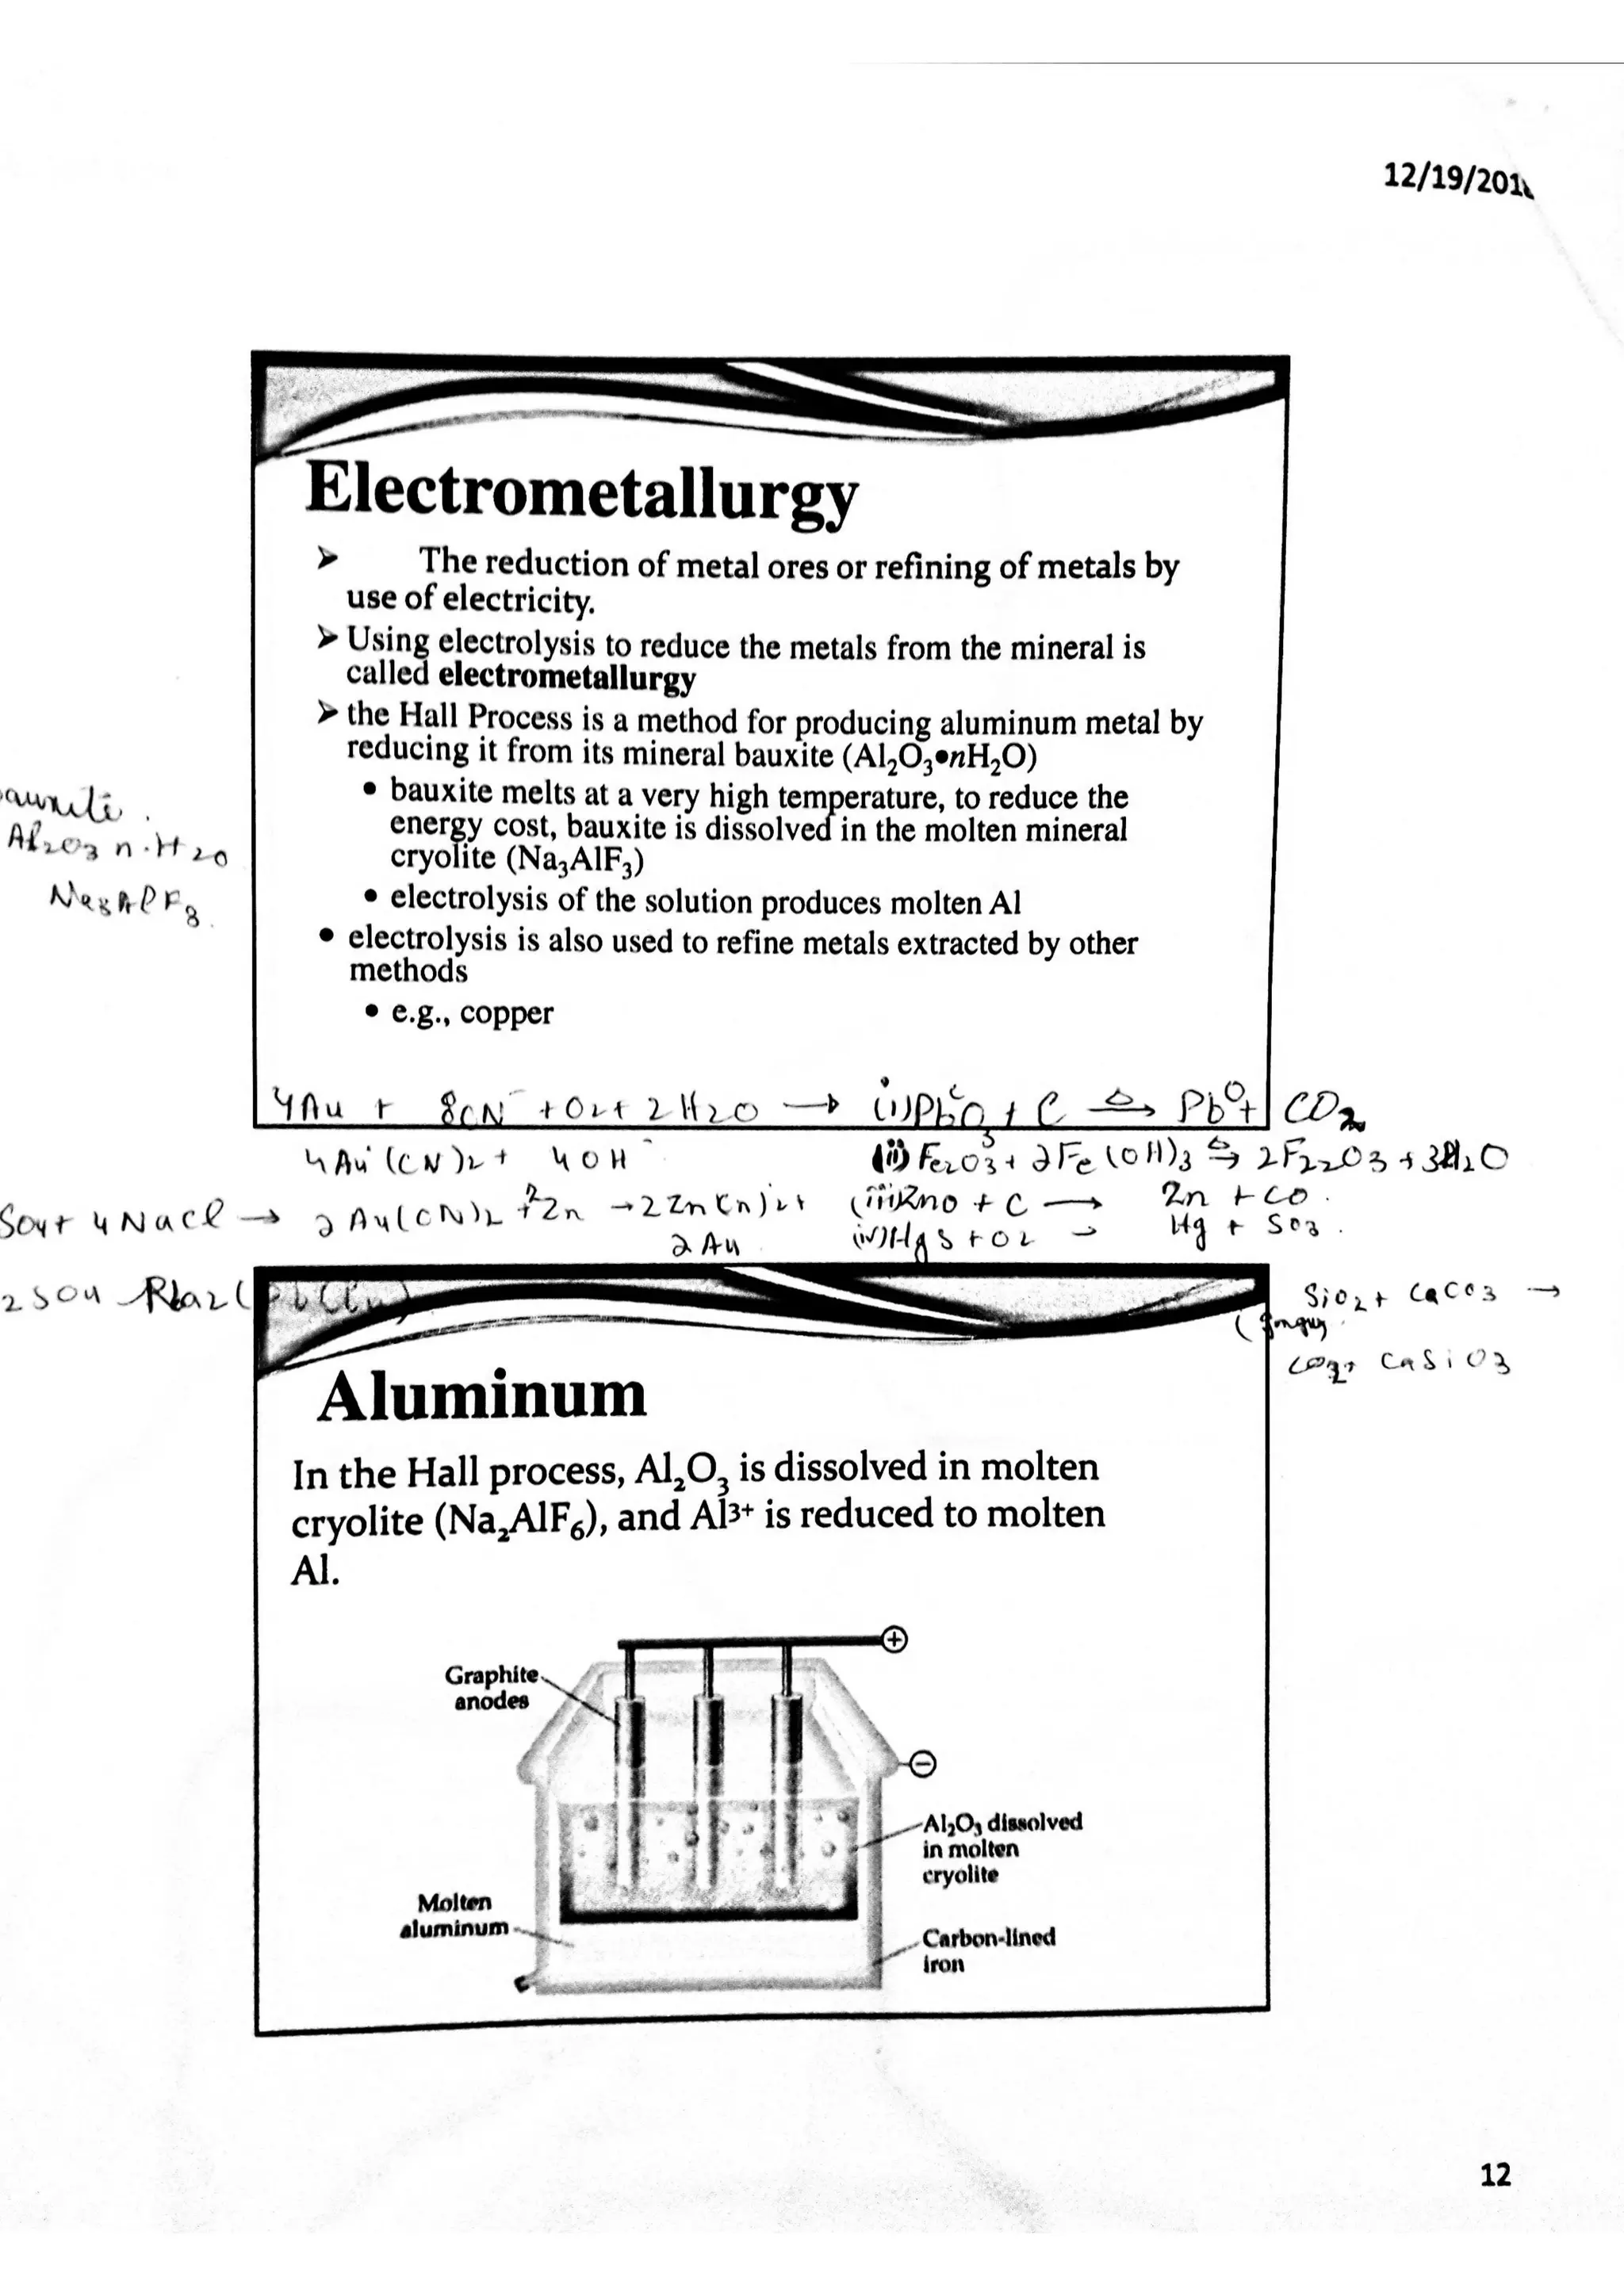 12/19/201
Electrometallurgy
➤ The reduction of metal ores or refining of metals by
use of electricity.
➤ Using electrolysis to reduce the metals from the mineral is
called electrometallurgy
➤ the Hall Process is a method for producing aluminum metal by
reducing it from its mineral bauxite (Al₂O₃•nH₂O)
• bauxite melts at a very high temperature, to reduce the
energy cost, bauxite is dissolved in the molten mineral
cryolite (Na₃AlF₃)
• electrolysis of the solution produces molten Al
• electrolysis is also used to refine metals extracted by other
methods
• e.g., copper
Al₂O₃ n·H₂O
Na₃AlF₃.
4Au + 8CN⁻ + O₂ + 2H₂O →
4Au(CN)₂ + 4OH⁻
SO4 + 4NaCl → 2Au(CN)₂ + Zn → 2Zn(CN)₂ +
2Au
(i) PbO + C ⇌ Pb + CO₂
(ii) Fe₂O₃ + 2Fe(OH)₃ ⇌ 2F₂₂O₃ + 3H₂O
(iii) ZnO + C → Zn + CO.
(iv) HgS + O₂ → Hg + SO₃.
2SO4
SiO₂ + CaCO₃ →
CaSiO₃
Aluminum
In the Hall process, Al₂O₃ is dissolved in molten
cryolite (Na₂AlF₆), and Al³⁺ is reduced to molten
Al.
+
Graphite
anodes
−
Al₂O₃ dissolved
in molten
cryolite
Molten
aluminum
Carbon-lined
iron
12